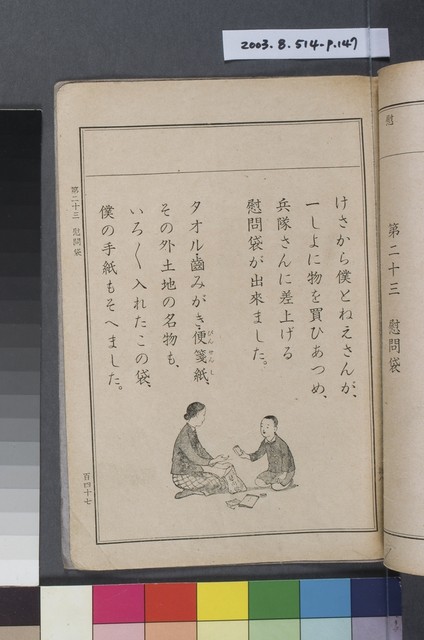 2003.8.514-P.147
慰
第二十三　慰問袋
けさから僕とねえさんが、
一しよに物を買ひあつめ、
兵隊さんに差上げる
慰問袋が出來ました。
タオル齒みがき便箋紙、
びんせんし
その外土地の名物も、
いろ〱入れたこの袋、
僕の手紙もそへました。
第二十三　慰問袋
百四十七